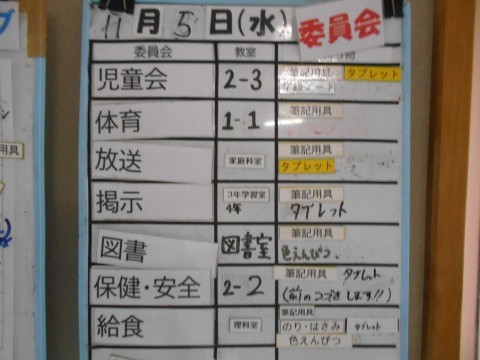 11月5日(水) 委員会
委員会 教室
児童会 2-3 筆記用具 タブレット
体育 1-1 筆記用具
放送 家庭科室 筆記用具
タブレット
掲示 3年学習室 筆記用具
4年 タブレット
図書 図書室 筆記用具
色えんぴつ、
保健・安全 2-2 筆記用具 タブレット
(前のつづきします!!)
給食 理科室 筆記用具
のり・はさみ タブレット
色えんぴつ
用具